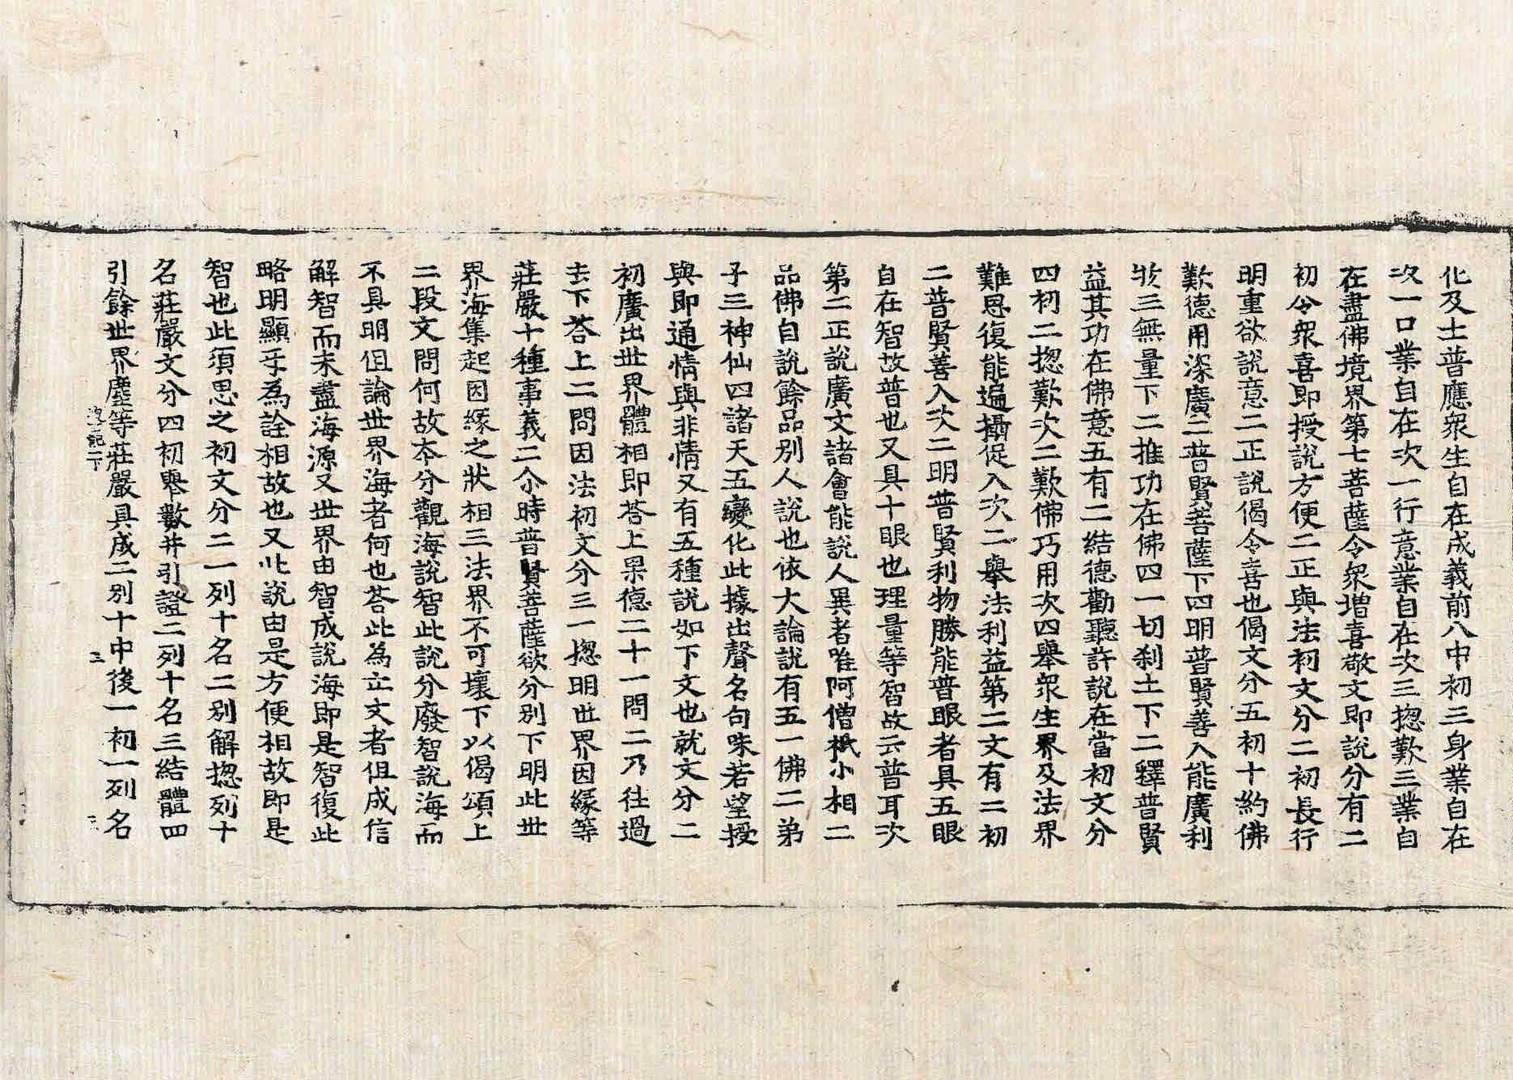 化及士普應衆生自在成義前八中初三身業自在
次一口業自在次一行意業自在次三揔歎三業自
在盡佛境界第七菩薩令衆増喜敬文即說分有二
初令衆喜即授說方便二正與法初文分二初長行
明重欲說意二正說偈令喜也偈文分五初十約佛
歎德用深廣二普賢菩薩下四明普賢善入能廣利
状三無量下二推功在佛四一切刹土下二釋普賢
益其功在佛意五有二結德勸聽許說在當初文分
四初二揔歎次二歎佛巧用次四舉衆生界及法界
難思復能遍攝促入次二舉法利益第二文有二初
二普賢善入次二明普賢利物勝能普眼者具五眼
自在智故普也又具十眼也理量等智故云普耳次
第二正說廣文諸會能說人異者唯阿僧祇小相二
品佛自說餘品別人說也依大論說有五一佛二弟
子三神仙四諸天五變化此據出聲名句味若望授
與即通情與非情又有五種說如下文也就文分二
初廣出世界體相即荅上果德二十一問二乃往過
去下荅上二問因法初文分三一揔明世界因緣等
莊嚴十種事義二尒時普賢菩薩欲分別下明此世
界海集起因緣之狀相三法界不可壞下以偈頌上
二段文問何故夲分觀海說智此說分廢智說海而
不具明但論世界海者何也荅此為立文者但成信
解智而未盡海源又世界由智成說海即是智復此
略明顯子為詮相故也又此說由是方便相故即是
智也此須思之初文分二一列十名二別解揔列十
名莊嚴文分四初舉數并引證二列十名三結體四
引餘世界塵等莊嚴具成二別十中後一初一列名